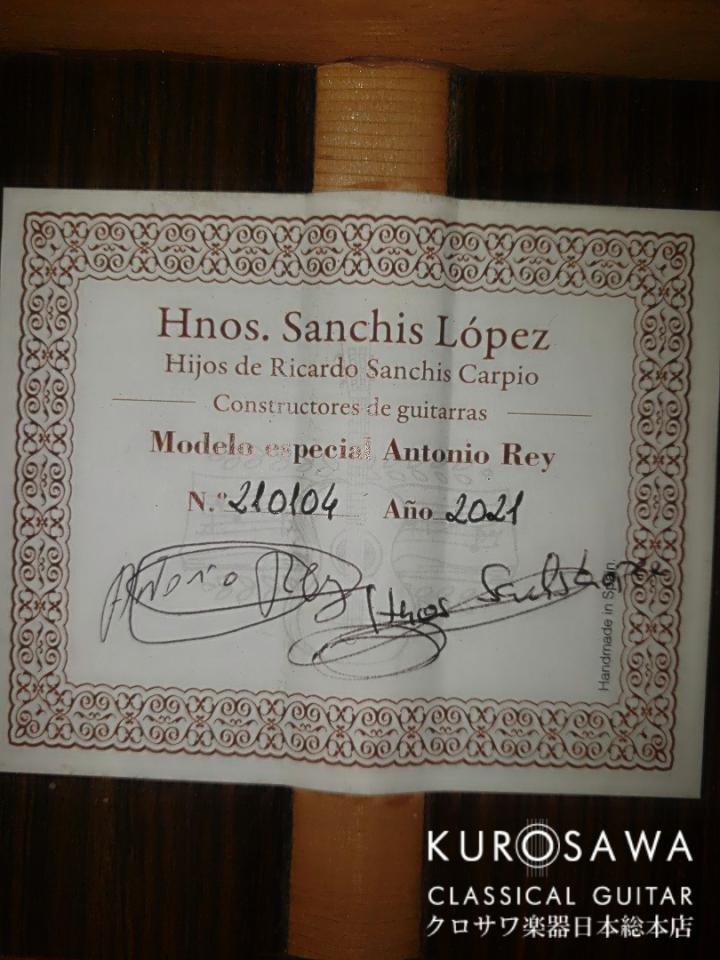 Hnos. Sanchis López
Hijos de Ricardo Sanchis Carpio
Constructores de guitarras
Modelo especial Antonio Rey
N.º 210104 Año 2021
Antonio Rey Hnos Sanchis López
Handmade in Spain.
KUROSAWA
CLASSICAL GUITAR
クロサワ楽器日本総本店